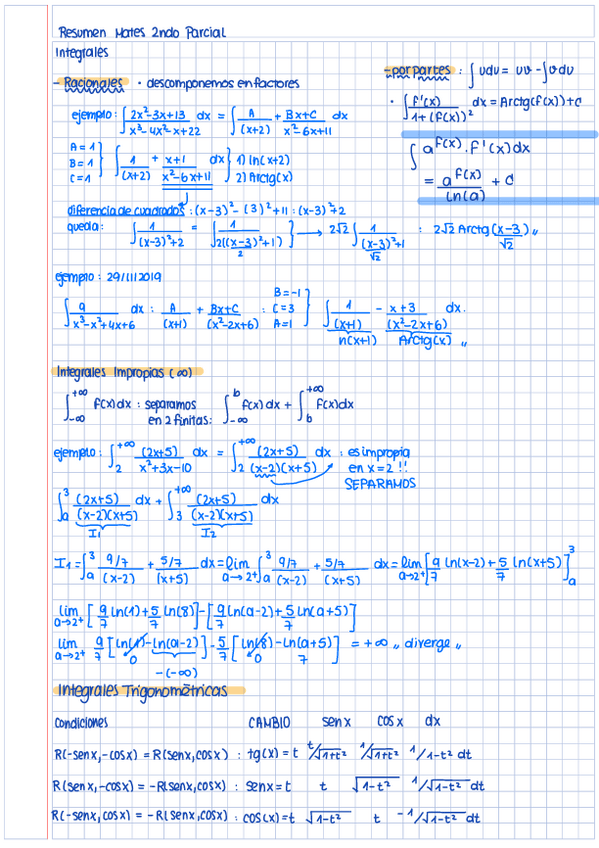 Resumen Mates 2ndo Parcial
Integrales
- Racionales · descomponemos en factores
ejemplo: ∫ 2x²-3x+13 / x³-4x²-x+22 dx = ∫ A/(x+2) + Bx+C / x²-6x+11 dx
A=1
B=1
C=1
∫ 1/(x+2) + x+1 / x²-6x+11 dx } 1) ln(x+2)
2) Arctg(x)
diferencia de cuadrados: (x-3)²-(3)²+11 : (x-3)²+2
queda: ∫ 1/(x-3)²+2 = ∫ 1/2((x-3)²/2+1) } → 2√2 ∫ 1/(x-3)²/√2+1 : 2√2 Arctg (x-3)/√2 „
- por partes : ∫ udv = uv - ∫ vdu
· ∫ f'(x) / 1+(f(x))² dx = Arctg(f(x))+C
∫ a^f(x) · f'(x) dx
= a^f(x) / ln(a) + C
ejemplo: 29/11/2019
∫ 9 / x³-x²+4x+6 dx : A/(x+1) + Bx+C / (x²-2x+6) : B=-1
C=3
A=1 } ∫ 1/(x+1) - x+3 / (x²-2x+6) dx.
n(x+1) Arctg(x) „
Integrales Impropias (∞)
∫-∞^+∞ f(x)dx : separamos
en 2 finitas: ∫-∞^b f(x)dx + ∫b^+∞ f(x)dx
ejemplo: ∫2^+∞ (2x+5) / x²+3x-10 dx = ∫2^+∞ (2x+5) / (x-2)(x+5) dx : es impropia
en x=2 !!
SEPARAMOS
∫a^3 (2x+5) / (x-2)(x+5) dx + ∫3^+∞ (2x+5) / (x-2)(x+5) dx
I1 I2
I1 = ∫a^3 9/7 / (x-2) + 5/7 / (x+5) dx = lim a→2+ ∫a^3 9/7 / (x-2) + 5/7 / (x+5) dx = lim a→2+ [9/7 ln(x-2) + 5/7 ln(x+5)]a^3
lim a→2+ [9/7 ln(1) + 5/7 ln(8)] - [9/7 ln(a-2) + 5/7 ln(a+5)]
lim a→2+ 9/7 [ln(1) - ln(a-2)] - 5/7 [ln(8) - ln(a+5)] = +∞ „ diverge „
0 0 7
-(-∞)
Integrales Trigonométricas
Condiciones CAMBIO sen x cos x dx
R(-senx, -cosx) = R(senx, cosx) : tg(x) = t t/√1+t² 1/√1+t² 1/1-t² dt
R(senx, -cosx) = -R(senx, cosx) : senx = t t √1-t² 1/√1-t² dt
R(-senx, cosx) = -R(senx, cosx) : cos(x) = t √1-t² t -1/√1-t² dt